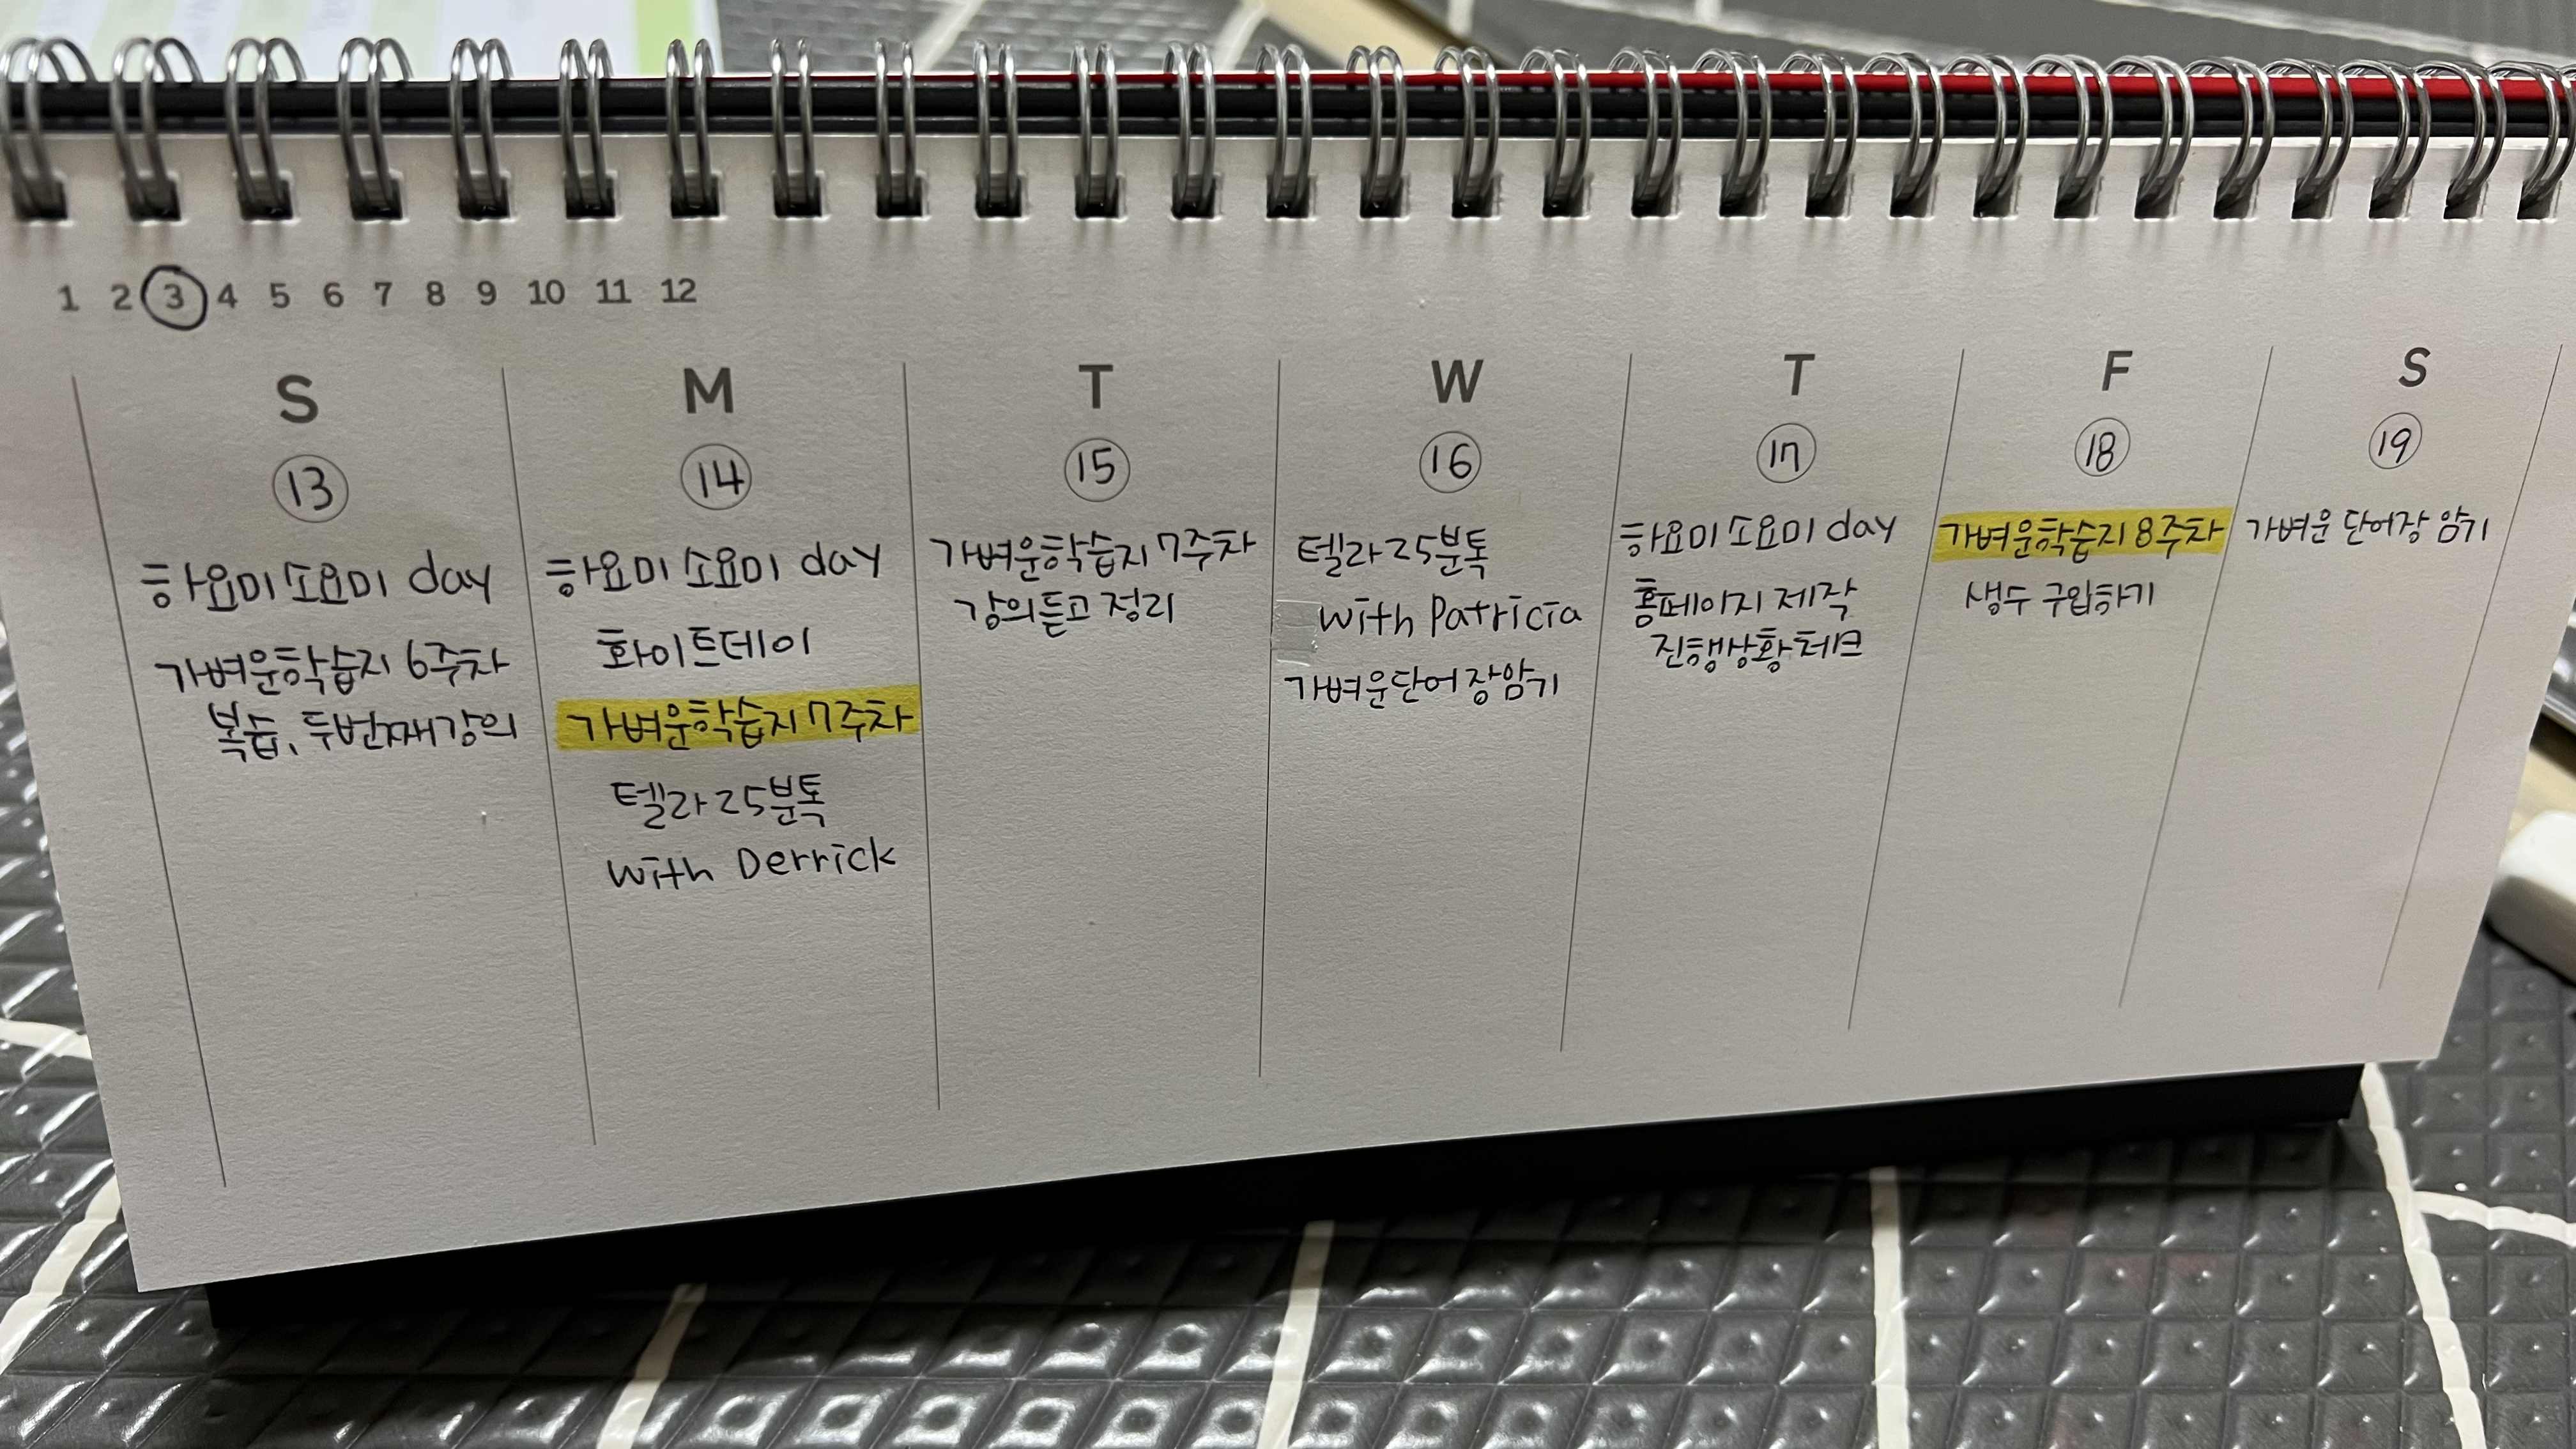 1 2 3 4 5 6 7 8 9 10 11 12
S M T W T F S
13 14 15 16 17 18 19
하요미소요미 day
가벼운학습지 6주차
복습, 두번째강의
하요미 소요미 day
화이트데이
가벼운학습지 7주차
텔라 25분톡
with Derrick
가벼운학습지 7주차
강의듣고 정리
텔라 25분톡
with Patricia
가벼운단어장암기
하요미 소요미 day
홈페이지 제작
진행상황체크
가벼운학습지 8주차
생수 구입하기
가벼운 단어장 암기